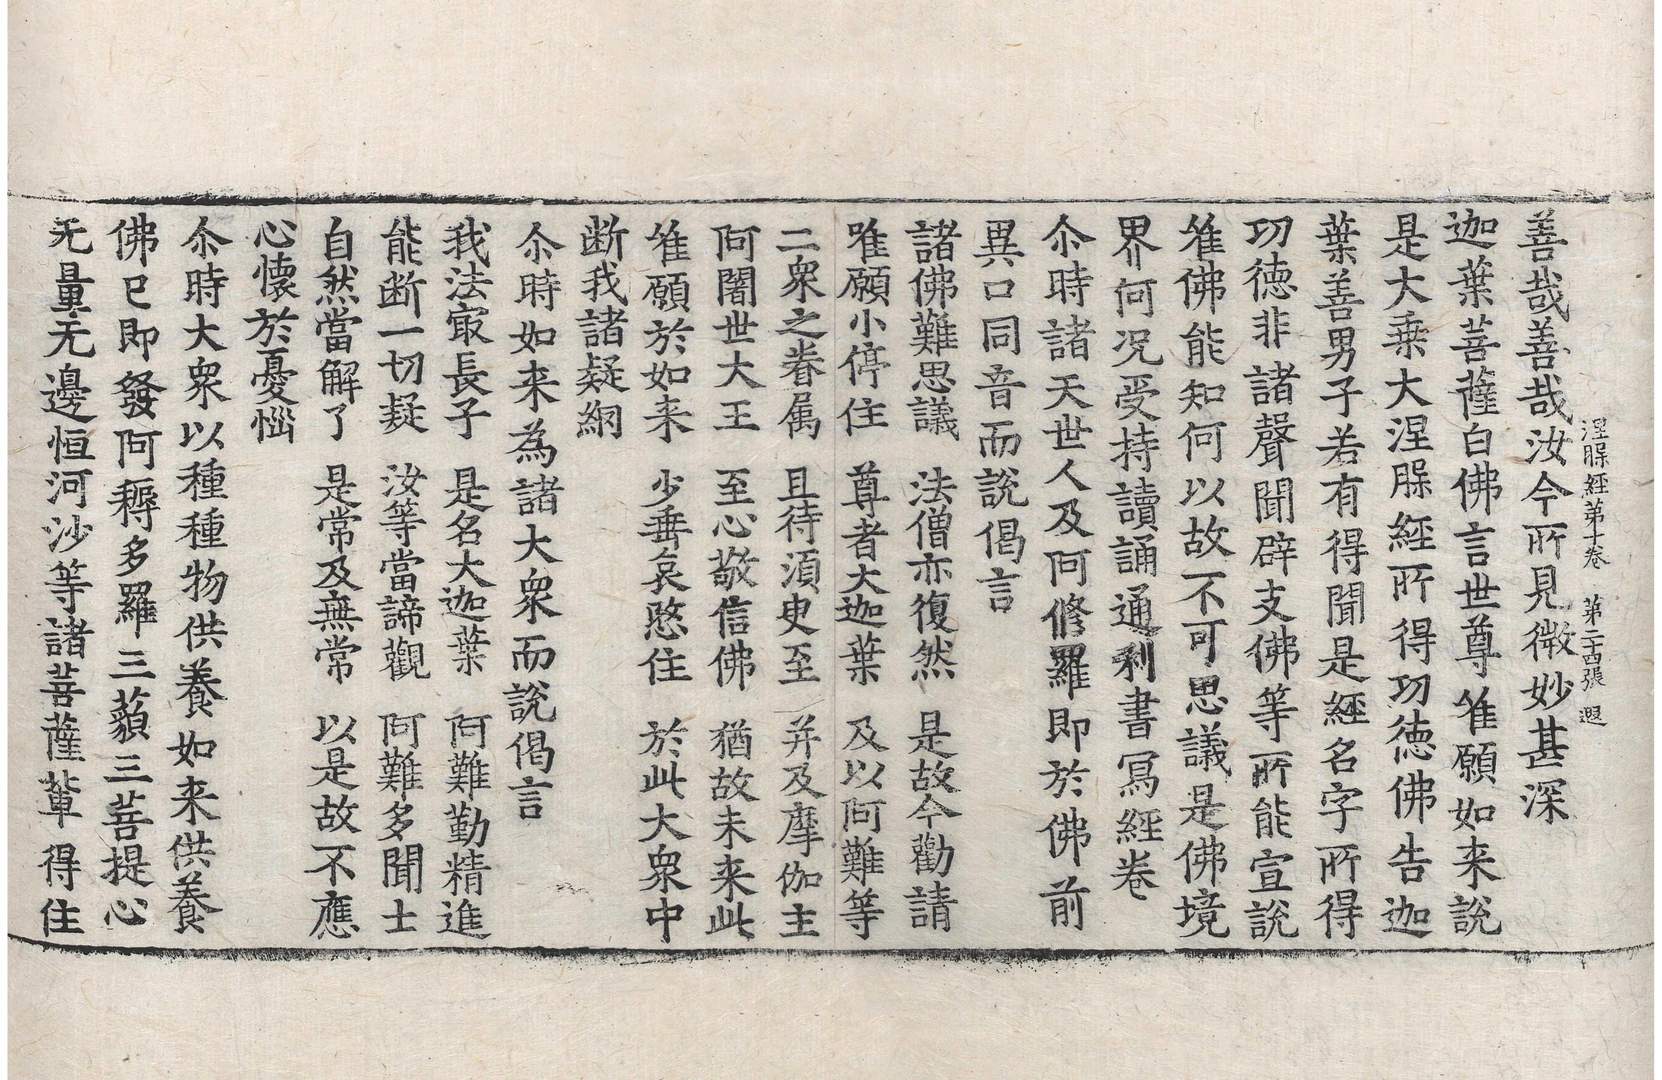 涅脲經第十卷　第二十四張　遐
善哉善哉汝今所見微妙甚深
迦葉菩薩白佛言世尊唯願如来說
是大乗大涅脲經所得功德佛告迦
葉善男子若有得聞是經名字所得
功德非諸聲聞辟支佛等所能宣說
唯佛能知何以故不可思議是佛境
界何況受持讀誦通利書寫經卷
尒時諸天世人及阿修羅即於佛前
異口同音而說偈言
諸佛難思議　法僧亦復然　是故今勸請
唯願小停住　尊者大迦葉　及以阿難等
二衆之眷属　且待湏臾至　并及摩伽主
阿闍世大王　至心敬信佛　猶故未来此
唯願於如来　少垂哀愍住　於此大衆中
断我諸疑網
尒時如来為諸大衆而說偈言
我法㝡長子　是名大迦葉　阿難勤精進
能断一切疑　汝等當諦觀　阿難多聞士
自然當解了　是常及無常　以是故不應
心懷於憂惱
尒時大衆以種種物供養如来供養
佛已即發阿耨多羅三藐三菩提心
无量无邊恒河沙等諸菩薩輩得住